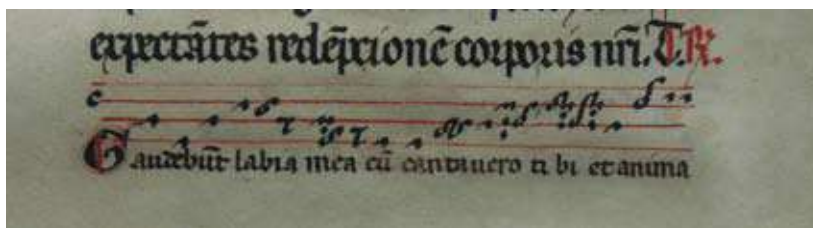 expectātes redēpcionē corporis nr̄i. T. R.
Gaudebūt labia mea cū cantavero ti bi et anima